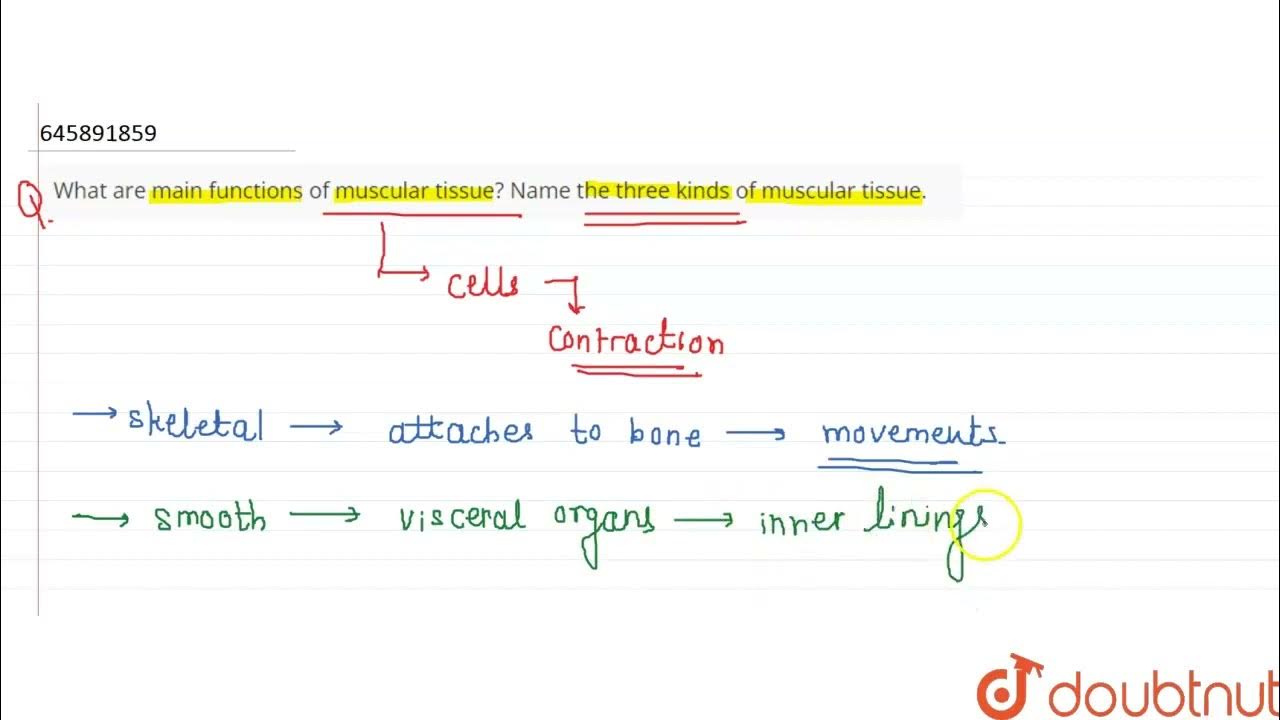 645891859
Q. What are main functions of muscular tissue? Name the three kinds of muscular tissue.
cells
contraction
→ skeletal → attaches to bone → movements
→ smooth → visceral organs → inner linings
doubtnut